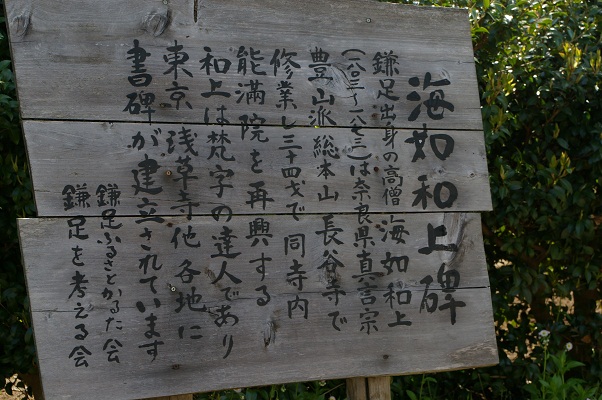 海如和上碑
鎌足出身の高僧海如和上
(一八〇三～一八七三)は奈良県真言宗
豊山派総本山長谷寺で
修業し三十四才で同寺内
能満院を再興する
和上は梵字の達人であり
東京浅草寺他各地に
書碑が建立されています
鎌足ふるさとかるた会
鎌足を考える会